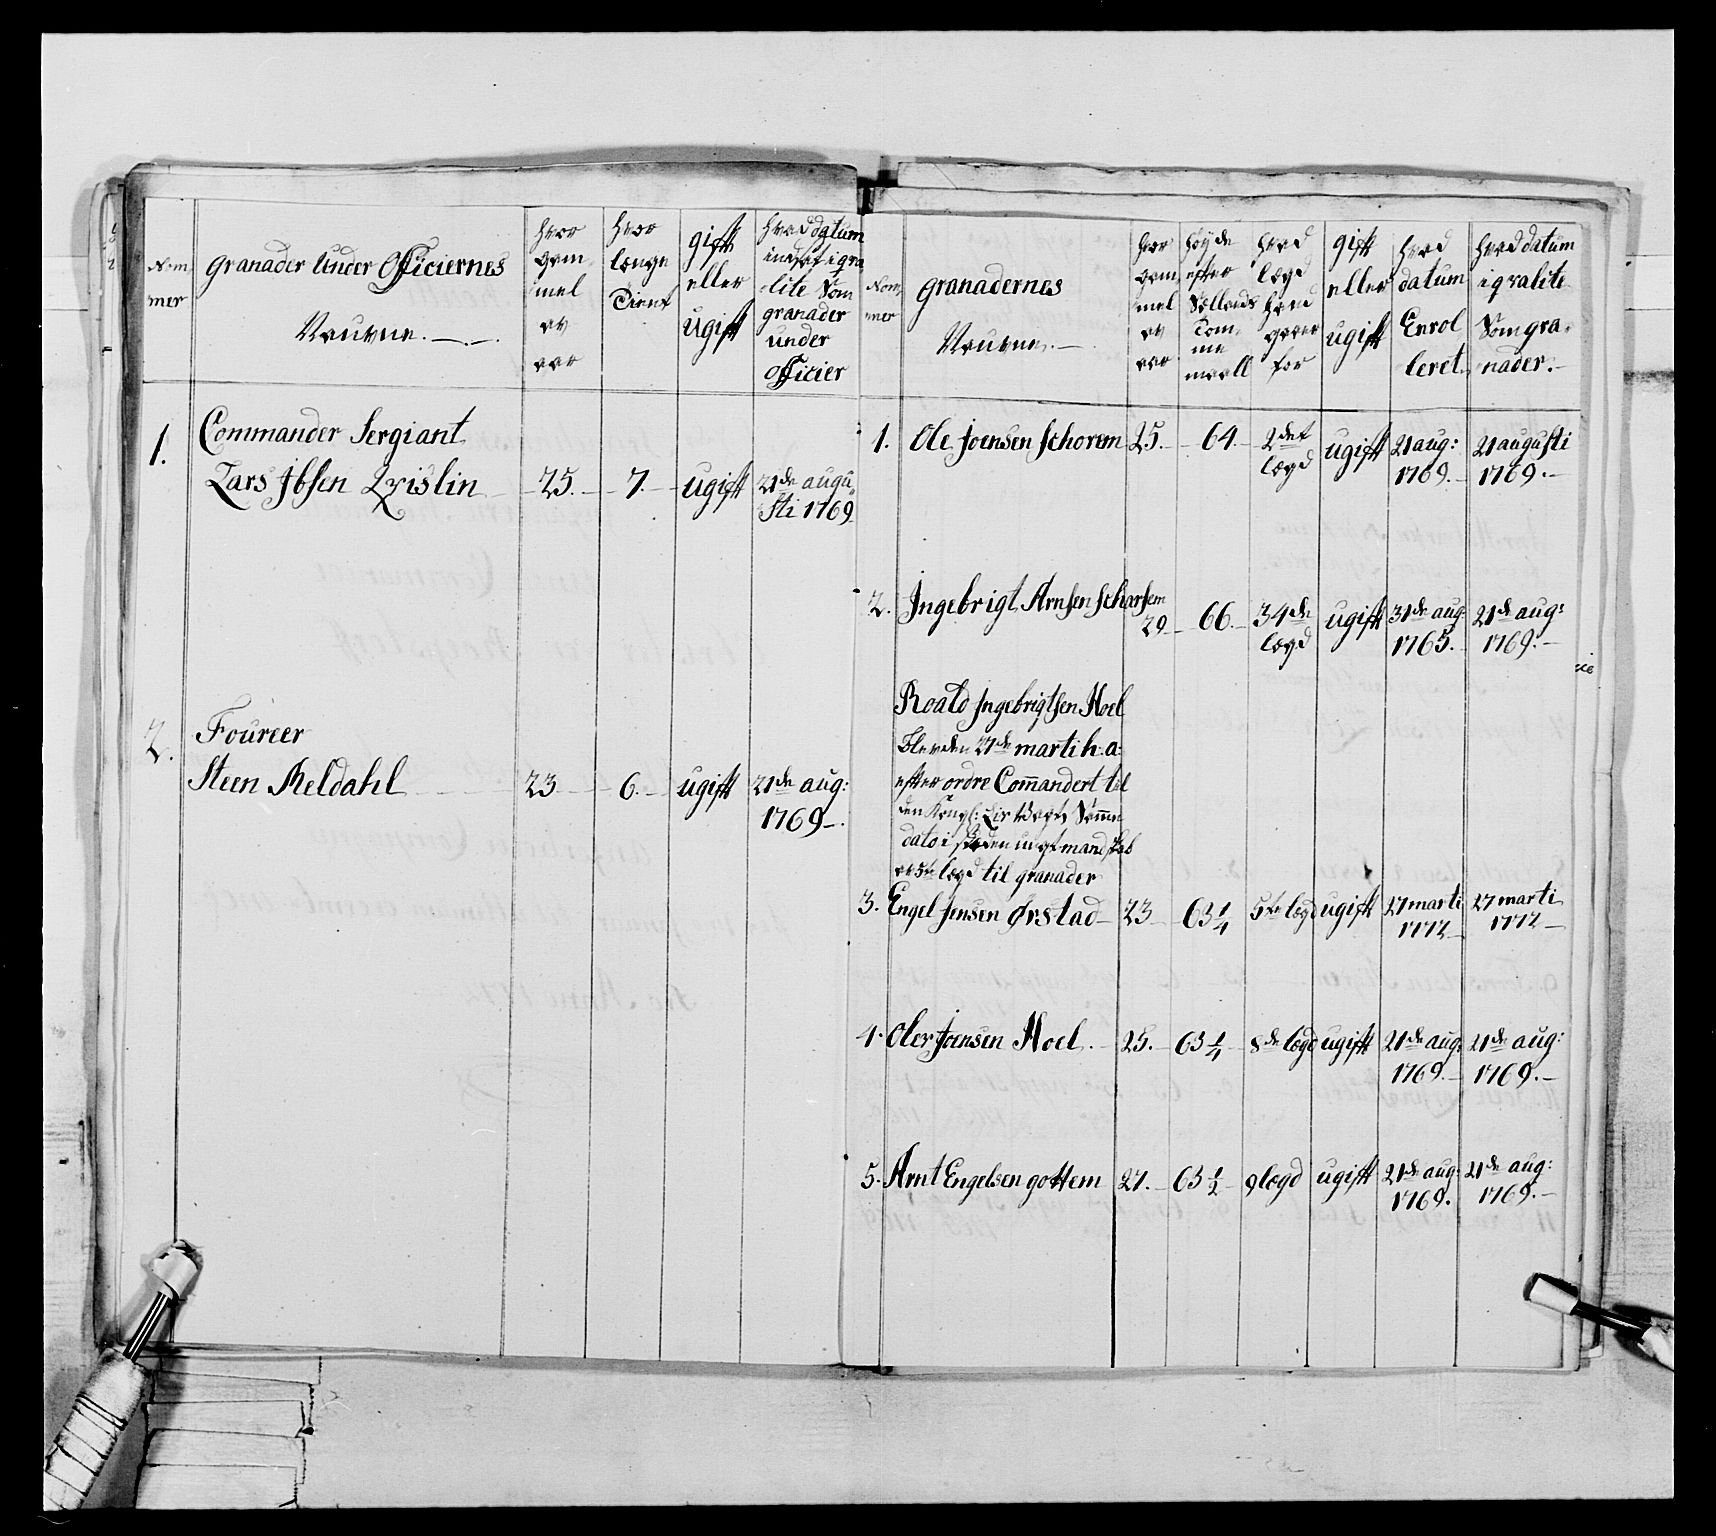 Nom
mer
Granader Under Officiernes
Nauvne.
hvor
gam
mel
av
aar
hvor
længe
Tient
gift
eller
ugift
hvad datum
indsat i qva
lite Som
granader
under
Officier
1.
Commander Sergiant
Lars Ibsen Qvislin 25. 7. ugift 21de augu
sti 1769
2.
Foureer
Steen Meldahl 23 6. ugift 21de aug:
1769
Nom
mer
granadernes
Nauvne.
hvor
gam
mel
av
aar
høyde
efter
Sællands
Tom
me
maall
hvad
lægd
hvad
giver
for
gift
eller
ugift
hvad
datum
Enrol
leret
hvad datum
i qvalite
Som gra
nader.
1. Ole Joensen Schorem 25. 64. 2det
lægd ugift 21 aug:
1769. 21 augusti
1769.
2. Ingebrigt Arnsen Scharsem
29 66. 34de
lægd ugift 31de aug.
1765. 21de aug:
1769.
Roald Ingebrigtsen Hoel
blev den 27de marti h: a:
efter ordre Commandert til
den Kongl: Liv Vagt Samme
dato i stæden mand skab
5te lægd til granader
3. Engel Jensen Ørstad 23 63 1/4 5te lægd ugift 27 marti
1772 27 marti
1772
4. Ole Joensen Hoel. 25. 63 1/4 8de lægd ugift 21de aug:
1769. 21de aug:
1769.
5. Arnt Engelsen gottem 27. 63 1/2 9 lægd ugift 21de aug:
1769. 21de aug:
1769.